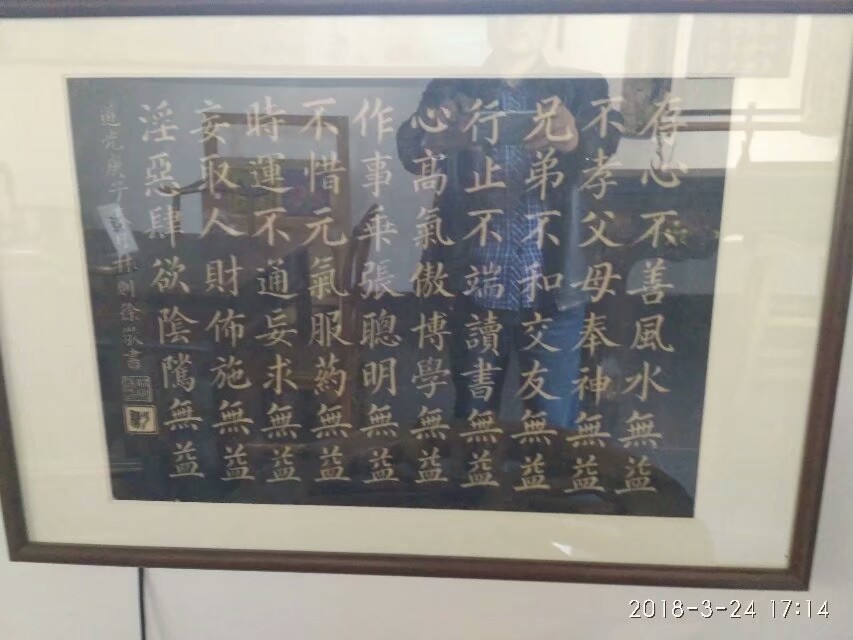 存心不善風水無益
不孝父母奉神無益
兄弟不和交友無益
行止不端讀書無益
心高氣傲博學無益
作事乖張聰明無益
不惜元氣服药無益
時運不通妄求無益
妄取人財佈施無益
淫惡肆欲陰騭無益
道光庚子 林則徐敬書
2018-3-24 17:14